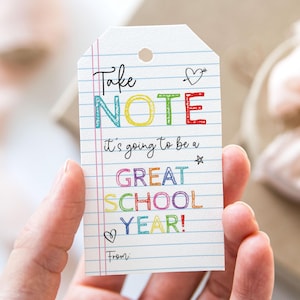 Take
NOTE
it's going to be a
GREAT
SCHOOL
YEAR!
From: